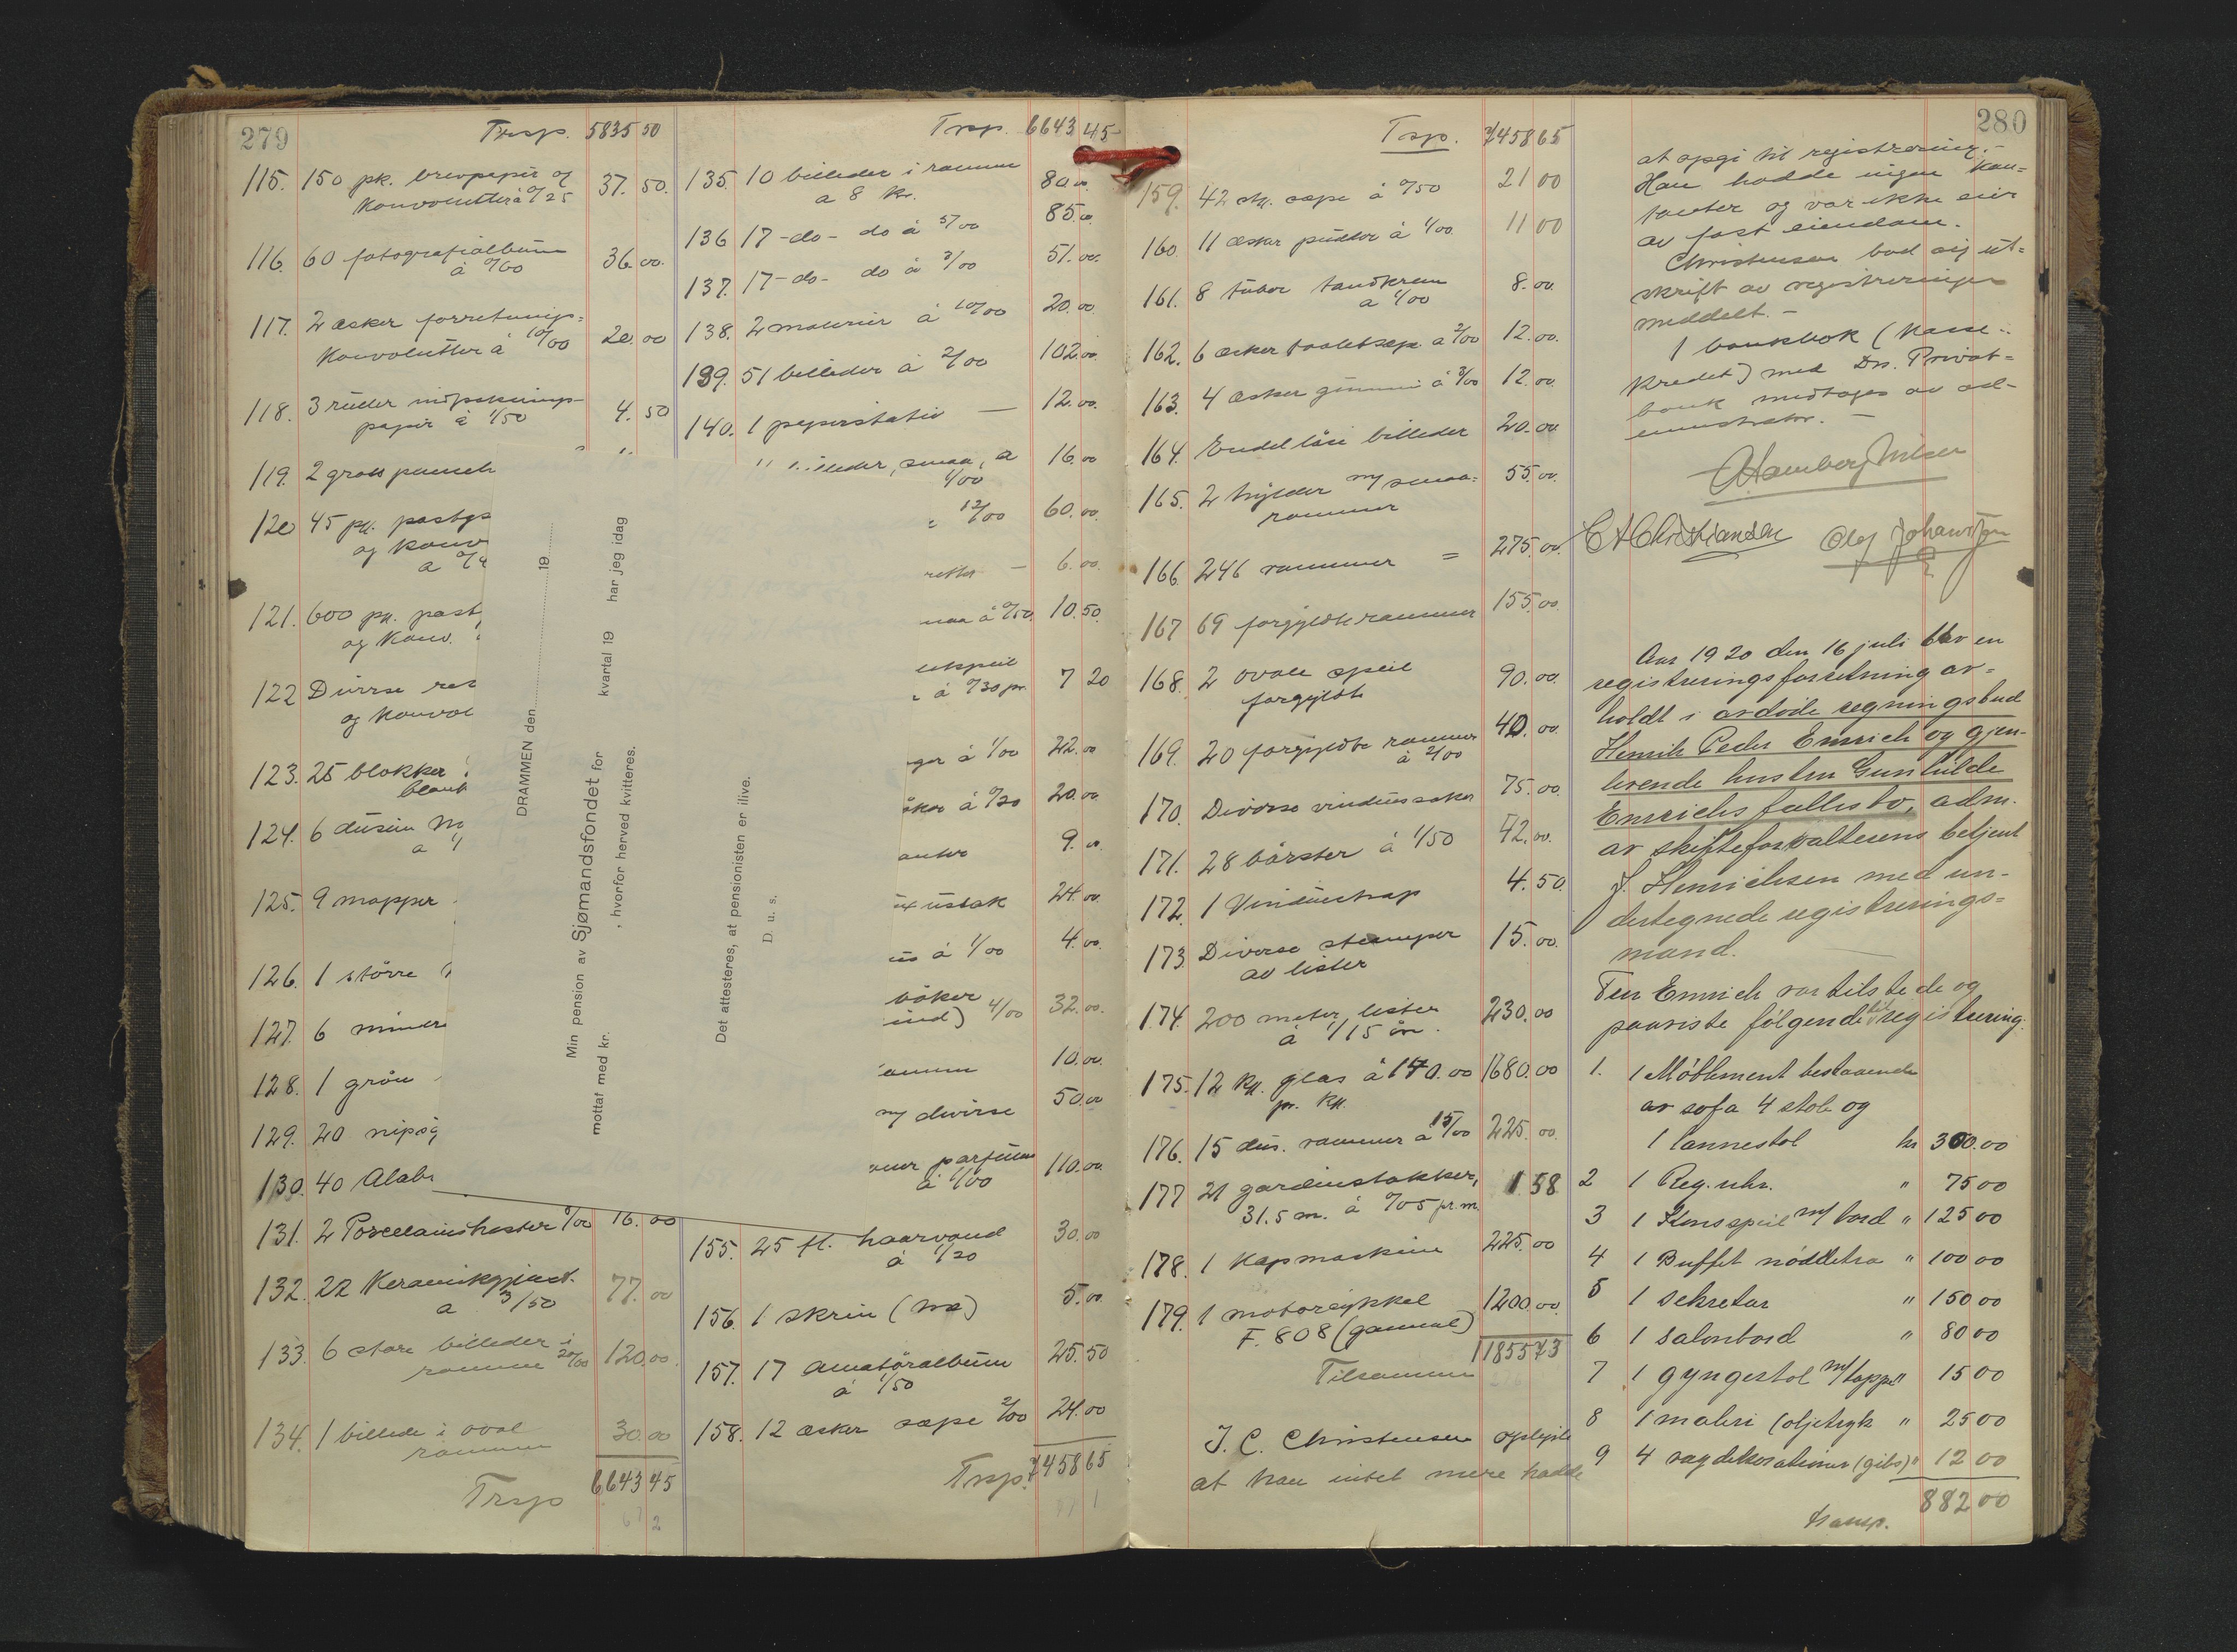 279
Trsp. 5835 50
115. 150 pk. brevpapir og
Konvolutter à 0/25 37. 50.
116. 60 fotografialbum
à 0/60 36.00.
117. 2 æsker forretnings-
Konvolutter à 10/00 20.00
118. 3 ruller indpaknings-
papir à 1/50 4. 50
119. 2 gross
120 45 pk.
og Konv
a
121. 600 pk. post
og Konv.
122 Diverse
og Konvol
123. 25 blokker
124. 6 dusin
a
125. 9 mapper
126. 1 større
127. 6 mindre
128. 1 grøn
129. 20
130. 40 Alab
131. 2 Porcelainshester 8/00 16.00
132. 22 Keramikgjenst.
a 3/50 77.00
133. 6 store billeder i
ramme 20/00 120.00.
134. 1 billede i oval
ramme 30.00
Trsp 6643 45
DRAMMEN den 19
Min pension av Sjømandsfondet for kvartal 19 har jeg idag
mottat med kr. , hvorfor herved kvitteres.
Det attesteres, at pensionisten er ilive.
D. u. s.
Trsp. 6643 45
135. 10 billeder i ramme
a 8 kr. 80.00
136 17 -do- do à 5/00 85.00
137. 17 -do- do à 3/00 51.00.
138. 2 malerier à 10/00 20.00
139. 51 billeder à 2/00 102.00.
140. 1 papirstativ — 12.00.
billeder, smaa, a
1/00 16.00
12/00 60.00.
— 6.00.
maa à 0/50. 10.50.
à 0/30 pr. 7 20
ger à 1/00 22.00
à 0/20 20.00.
9.00
24.00.
à 1/00 4.00.
bøker
ind) 4/00 32.00.
ramme 10.00.
m/ diverse 50.00
parfume
à 1/00 110.00.
155. 25 fl. haarvand
à 1/20 30.00
156. 1 skrin 5.00.
157. 17 amatøralbum
à 1/50 25.50
158. 12 æsker sæpe 2/00 24.00
Trsp. 7458 65
280
Trsp. 7458 65
159. 42 stk. sæpe à 0/50 21 00
160. 11 æsker pudder à 1/00. 11 00
161. 8 tuber tandkrem
a 1/00 8.00.
162. 6 æsker toaletsæpe a 2/00 12.00.
163. 4 æsker gummi à 3/00 12.00.
164. Endel løse billeder 20.00
165. 2 hylder m/ smaa-
rammer 55.00.
166. 246 rammer = 275.00.
167 69 forgyldte rammer 155.00.
168. 2 ovale speil
forgyldt 90.00.
169. 20 forgyldte rammer
à 2/00 40.00.
170. Diverse vindussaker 75.00.
171. 28 børster à 1/50 42.00.
172. 1 Vindustrap 4.50.
173. Diverse stumper
av lister 15.00.
174. 200 meter lister
à 1/15 øre. 230.00
175. 12 kk. glas à 140.00
pr. kk. 1680.00
176. 15 dus. rammer à 15/00 225.00.
177 21 gardinstokker,
31.5 m. à 0/05 pr. m. 1 58
178. 1 Kapmaskine 225.00
179. 1 motorcykkel
F. 808 (gammel) 1200.00.
Tilsammen 11855 73
J. C. Christensen oplyste
at han intet mere hadde
at opgi til registrering.-
Han hadde ingen kon-
tanter og var ikke eier
av fast eiendom.
Christensen bad sig ut-
skrift av registreringen
meddelt. -
1 bankbok (Kasse-
kredit) med Drs. Privat-
bank medtages av ad-
ministrator. —
C A Christiansen Olaf Johansen
Aar 1920 den 16 juli blev en
registreringsforretning av-
holdt i avdøde regningsbud
Henrik Peder Emrich og gjen-
levende hustru Gunhilde
Emrichs fællesbo, adm.
av skifteforvalterens betjent
J. Henrichsen med un-
dertegnede registrerings-
mand.
Fru Emrich var tilstede og
paaviste følgende til registrering.
1. 1 Møblement bestaaende
av sofa 4 stole og
1 lænestol kr 300.00
2 1 Reg. uhr. " 75 00
3 1 Konsspeil m/ bord " 125 00
4 1 Buffet nøddetræ " 100 00
5 1 sekretær " 150 00
6 1 salonbord " 80 00
7 1 gyngestol m/teppe " 15 00
8 1 maleri (oljetryk " 25 00
9 4 vægdekorationer (gibs) " 12 00
882 00
transp.